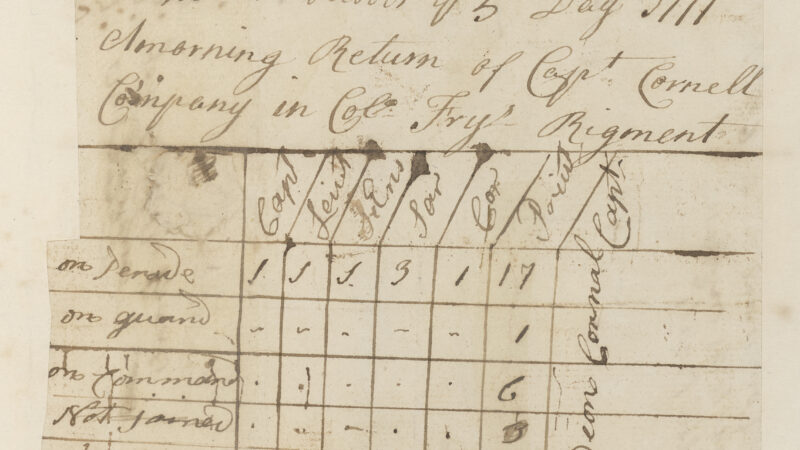 5 Day 1777
Amorning Return of Capt Cornell
Company in Colo Frys Rigment
Capt Leiut Ens Sar Cor
on Perade 1 1 1 3 1 17
on guard - - - - - 1
on Command . 1 . . . 6
Not joined . - . . . 3
Cornal Capt